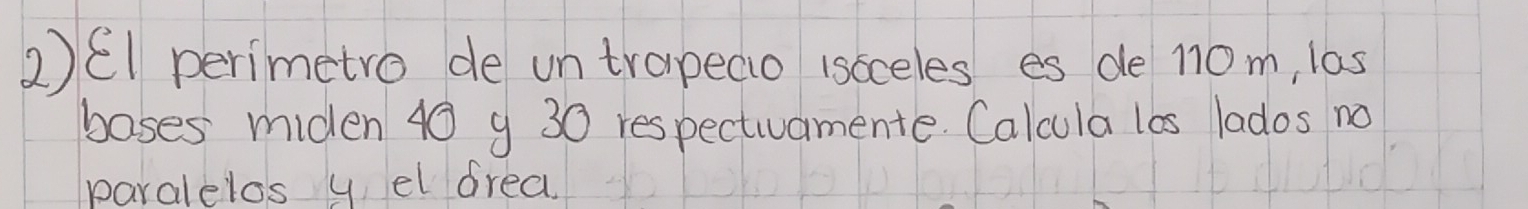 2) El perímetro de un trapecio isóceles es de 110 m, las
bases miden 40 y 30 respectivamente. Calcula los lados no
paralelos y el área.